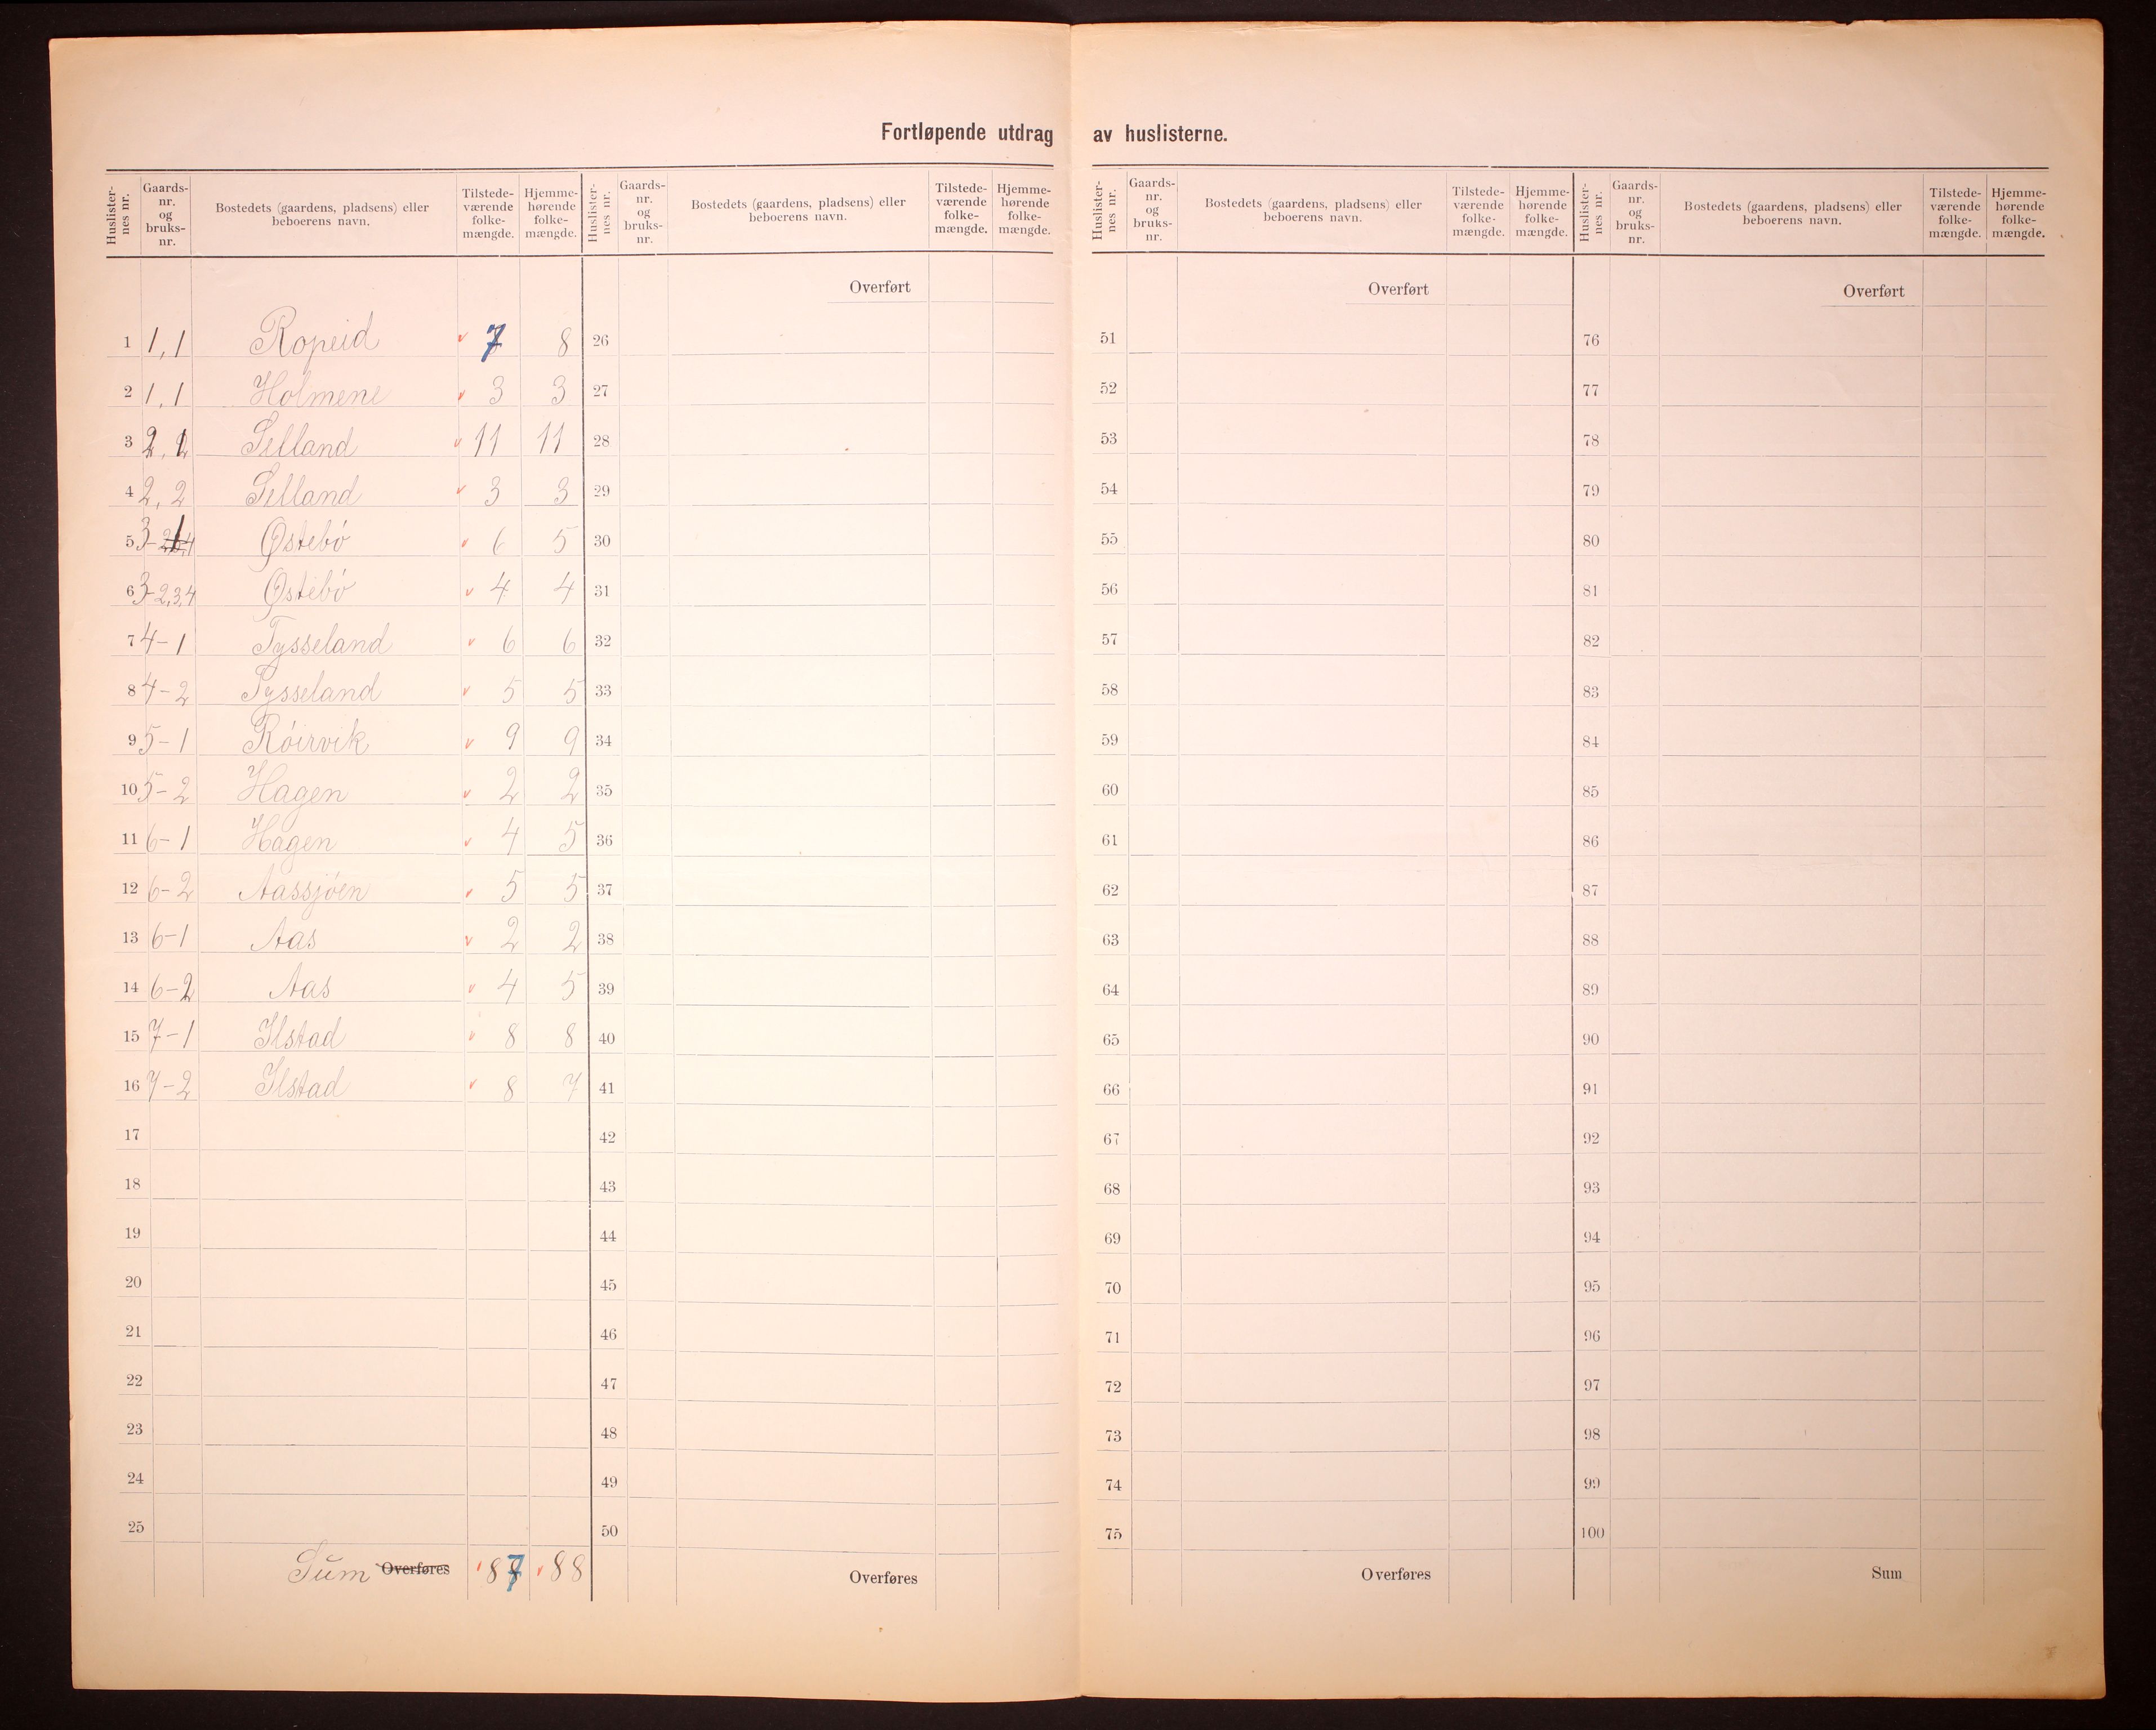 Fortløpende utdrag av huslisterne.
Huslisternes nr. Gaards-nr. og bruks-nr. Bostedets (gaardens, pladsens) eller beboerens navn. Tilstede-værende folke-mængde. Hjemme-hørende folke-mængde.
Huslisternes nr. Gaards-nr. og bruks-nr. Bostedets (gaardens, pladsens) eller beboerens navn. Tilstede-værende folke-mængde. Hjemme-hørende folke-mængde.
Huslisternes nr. Gaards-nr. og bruks-nr. Bostedets (gaardens, pladsens) eller beboerens navn. Tilstede-værende folke-mængde. Hjemme-hørende folke-mængde.
Huslisternes nr. Gaards-nr. og bruks-nr. Bostedets (gaardens, pladsens) eller beboerens navn. Tilstede-værende folke-mængde. Hjemme-hørende folke-mængde.
Overført Overført Overført
1 1,1 Ropeid 7 8 26 51 76
2 1,1 Holmene 3 3 27 52 77
3 2, Selland 11 11 28 53 78
4 2,2 Selland 3 3 29 54 79
5 3- 1 Østebó 6 5 30 55 80
6 3-2,3,4 Østebó 4 4 31 56 81
7 4-1 Tysseland 6 6 32 57 82
8 4-2 Tysseland 5 5 33 58 83
9 5-1 Róirvik 9 9 34 59 84
10 5-2 Hagen 2 2 35 60 85
11 6-1 Hagen 4 5 36 61 86
12 6-2 Aassjóen 5 5 37 62 87
13 6-1 Aas 2 2 38 63 88
14 6-2 Aas 4 5 39 64 89
15 7-1 Ilstad 8 8 40 65 90
16 7-2 Ilstad 8 7 41 66 91
17 42 67 92
18 43 68 93
19 44 69 94
20 45 70 95
21 46 71 96
22 47 72 97
23 48 73 98
24 49 74 99
25 50 75 100
Sum Overføres 87 88 Overføres Overføres Sum